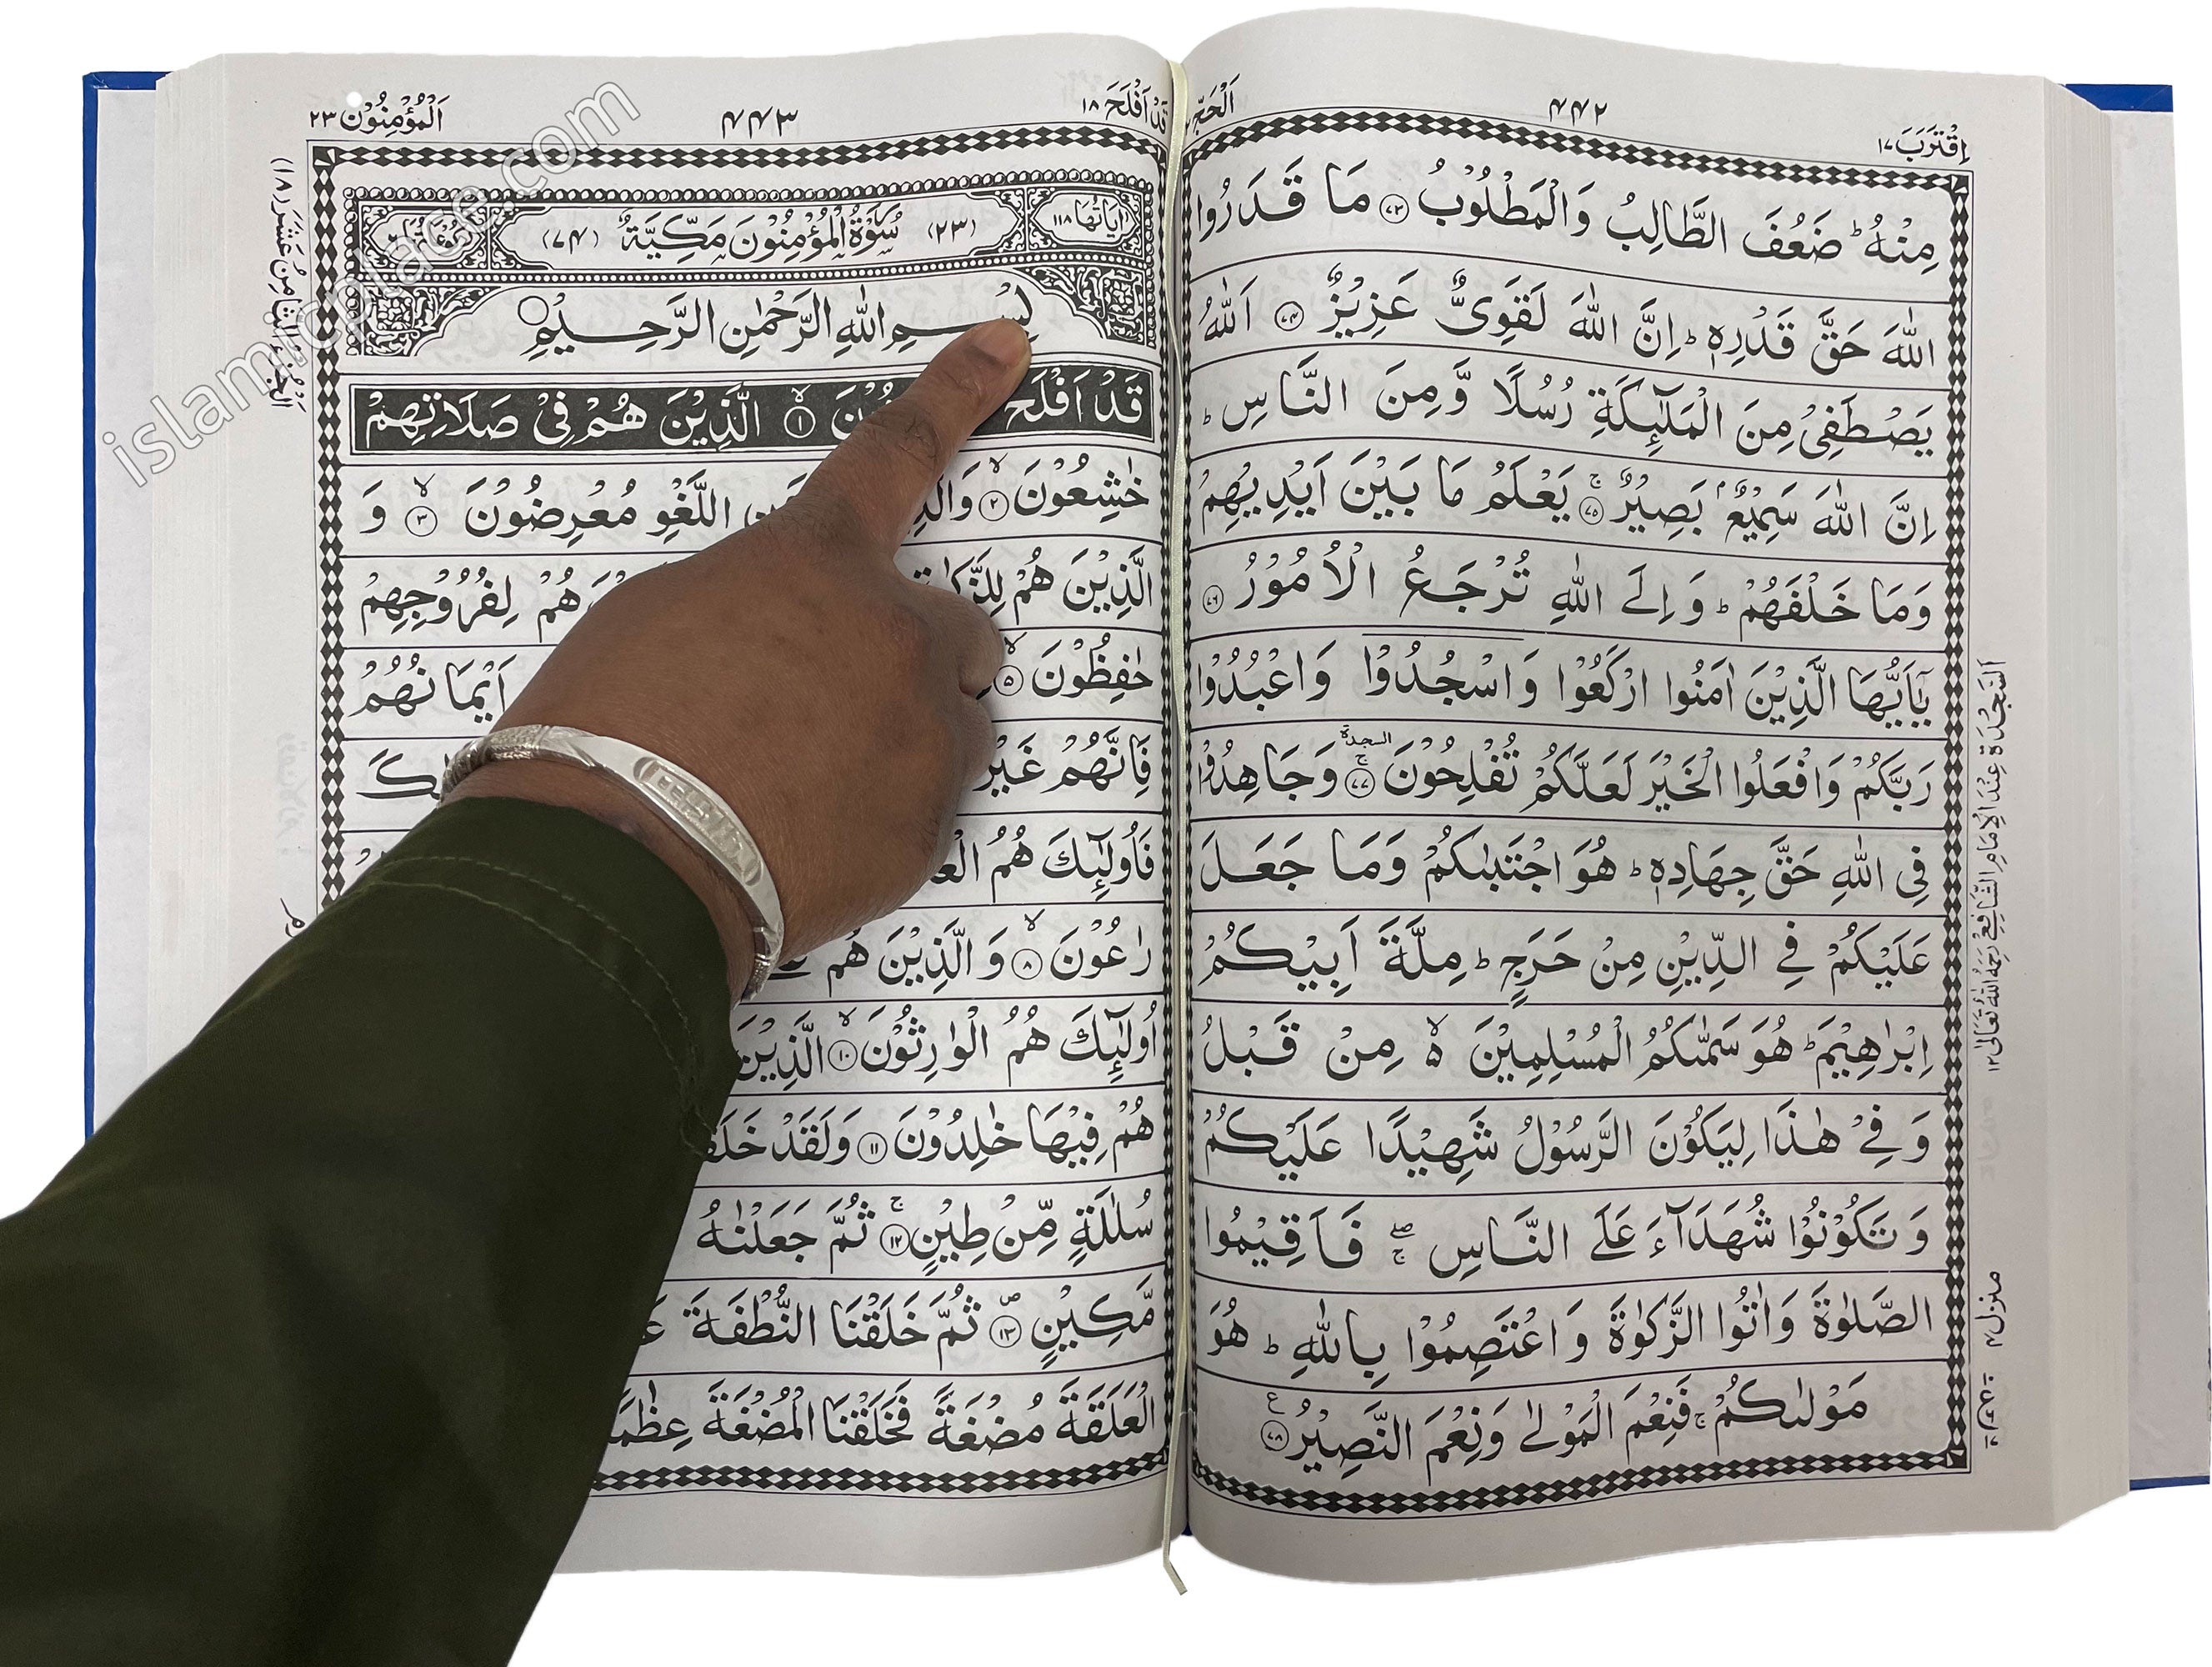 اِقْتَرَبَ ١٧
٤٤٢
اَلْحَجّ
مِنْهُ ؕ ضَعُفَ الطَّالِبُ وَالْمَطْلُوْبُ ﴿٧٣﴾ مَا قَدَرُوا
اللّٰهَ حَقَّ قَدْرِهٖ ؕ اِنَّ اللّٰهَ لَقَوِىٌّ عَزِيْزٌ ﴿٧٤﴾ اَللّٰهُ
يَصْطَفِىْ مِنَ الْمَلٰٓئِكَةِ رُسُلًا وَّمِنَ النَّاسِ ؕ
اِنَّ اللّٰهَ سَمِيْعٌۢ بَصِيْرٌ ۚ﴿٧٥﴾ يَعْلَمُ مَا بَيْنَ اَيْدِيْهِمْ
وَمَا خَلْفَهُمْ ؕ وَاِلَى اللّٰهِ تُرْجَعُ الْاُمُوْرُ ﴿٧٦﴾
يٰٓاَيُّهَا الَّذِيْنَ اٰمَنُوا ارْكَعُوْا وَاسْجُدُوْا وَاعْبُدُوْا
رَبَّكُمْ وَافْعَلُوا الْخَيْرَ لَعَلَّكُمْ تُفْلِحُوْنَ ۚ السجدة ﴿٧٧﴾ وَجَاهِدُوْا
فِى اللّٰهِ حَقَّ جِهَادِهٖ ؕ هُوَ اجْتَبٰىكُمْ وَمَا جَعَلَ
عَلَيْكُمْ فِى الدِّيْنِ مِنْ حَرَجٍ ؕ مِلَّةَ اَبِيْكُمْ
اِبْرٰهِيْمَ ؕ هُوَ سَمّٰىكُمُ الْمُسْلِمِيْنَ ۙ۬ مِنْ قَبْلُ
وَفِىْ هٰذَا لِيَكُوْنَ الرَّسُوْلُ شَهِيْدًا عَلَيْكُمْ
وَتَكُوْنُوْا شُهَدَآءَ عَلَى النَّاسِ ۖۚ فَاَقِيْمُوا
الصَّلٰوةَ وَاٰتُوا الزَّكٰوةَ وَاعْتَصِمُوْا بِاللّٰهِ ؕ هُوَ
مَوْلٰىكُمْ ۚ فَنِعْمَ الْمَوْلٰى وَنِعْمَ النَّصِيْرُ ﴿٧٨﴾ ع
اَلسَّجْدَة عِنْدَ الْاِمَامِ الشَّافِعِىْ رَحِمَهُ اللّٰهُ تَعَالٰى ١٢
منزل ٤
قَدْ اَفْلَحَ ١٨
٤٤٣
اَلْمُؤْمِنُوْن ٢٣
اٰيَاتُهَا ١١٨
(٢٣) سُوْرَةُ الْمُؤْمِنُوْنَ مَكِّيَّةٌ (٧٤)
بِسْمِ اللّٰهِ الرَّحْمٰنِ الرَّحِيْمِ
قَدْ اَفْلَحَ ﴿١﴾ الَّذِيْنَ هُمْ فِىْ صَلَاتِهِمْ
خٰشِعُوْنَ ۙ﴿٢﴾ اللَّغْوِ مُعْرِضُوْنَ ۙ﴿٣﴾ وَ
الَّذِيْنَ هُمْ هُمْ لِفُرُوْجِهِمْ
حٰفِظُوْنَ ۙ﴿٥﴾ اَيْمَانُهُمْ
فَاِنَّهُمْ غَيْرُ
فَاُولٰٓئِكَ هُمُ
رٰعُوْنَ ۙ﴿٨﴾ وَالَّذِيْنَ هُمْ
اُولٰٓئِكَ هُمُ الْوٰرِثُوْنَ ۙ﴿١٠﴾ الَّذِيْنَ
هُمْ فِيْهَا خٰلِدُوْنَ ﴿١١﴾ وَلَقَدْ
سُلٰلَةٍ مِّنْ طِيْنٍ ۚ﴿١٢﴾ ثُمَّ جَعَلْنٰهُ
مَّكِيْنٍ ۪﴿١٣﴾ ثُمَّ خَلَقْنَا النُّطْفَةَ
الْعَلَقَةَ مُضْغَةً فَخَلَقْنَا الْمُضْغَةَ
islamicplace.com